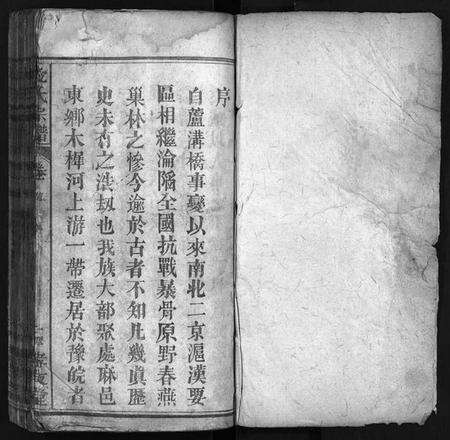 序
自蘆溝橋事變以來南北二京滬漢要
區相繼淪陷全國抗戰暴骨原野春燕
巢林之慘今逾於古者不知几幾眞歷
史未有之浩刼也我族大部聚處麻邑
東鄉木樨河上游一帶遷居於豫皖者
氏宗譜 卷